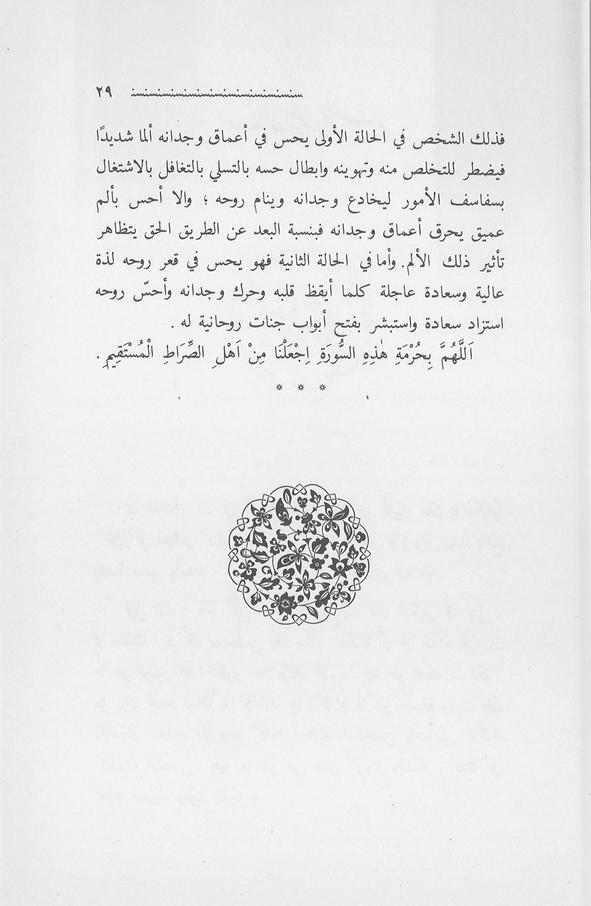 ٢٩
فذلك الشخص في الحالة الأولى يحس في أعماق وجدانه ألما شديدًا
فيضطر للتخلص منه وتهوينه وابطال حسه بالتسلي بالتغافل بالاشتغال
بسفاسف الأمور ليخادع وجدانه وينام روحه ؛ والا أحس بألم
عميق يحرق أعماق وجدانه فبنسبة البعد عن الطريق الحق يتظاهر
تأثير ذلك الألم. وأما في الحالة الثانية فهو يحس في قعر روحه لذة
عالية وسعادة عاجلة كلما أيقظ قلبه وحرك وجدانه وأحسّ روحه
استزاد سعادة واستبشر بفتح أبواب جنات روحانية له .
اَللَّهُمَّ بِحُرْمَةِ هٰذِهِ السُّورَةِ اِجْعَلْنَا مِنْ اَهْلِ الصِّرَاطِ الْمُسْتَقِيمِ .
* * *